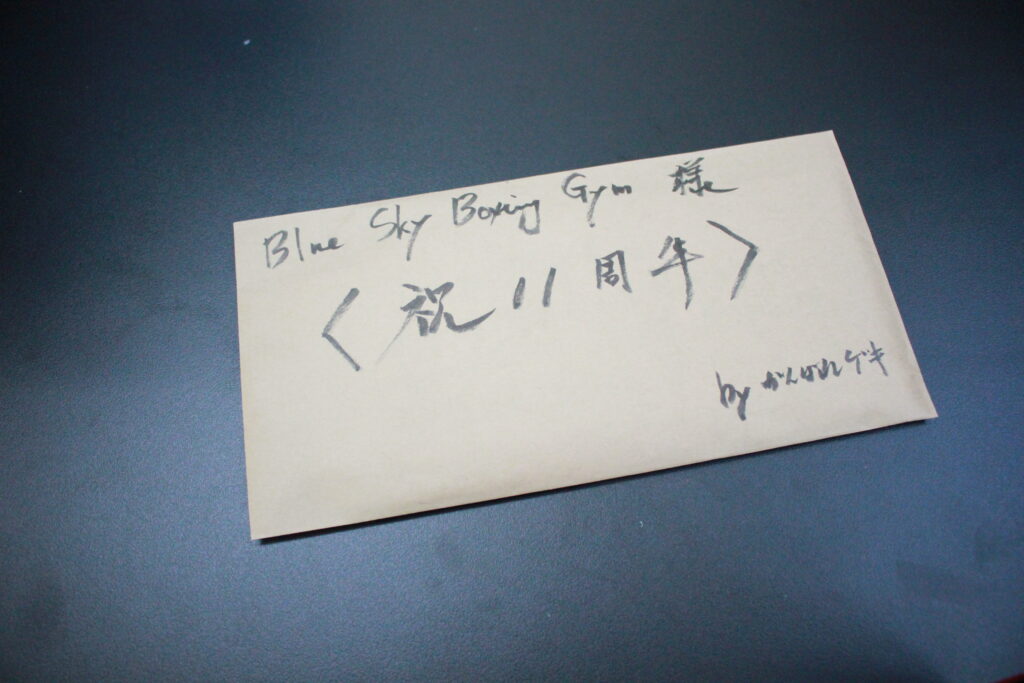 Blue Sky Boxing Gym 様
〈祝11周年〉
by がんばれゲキ